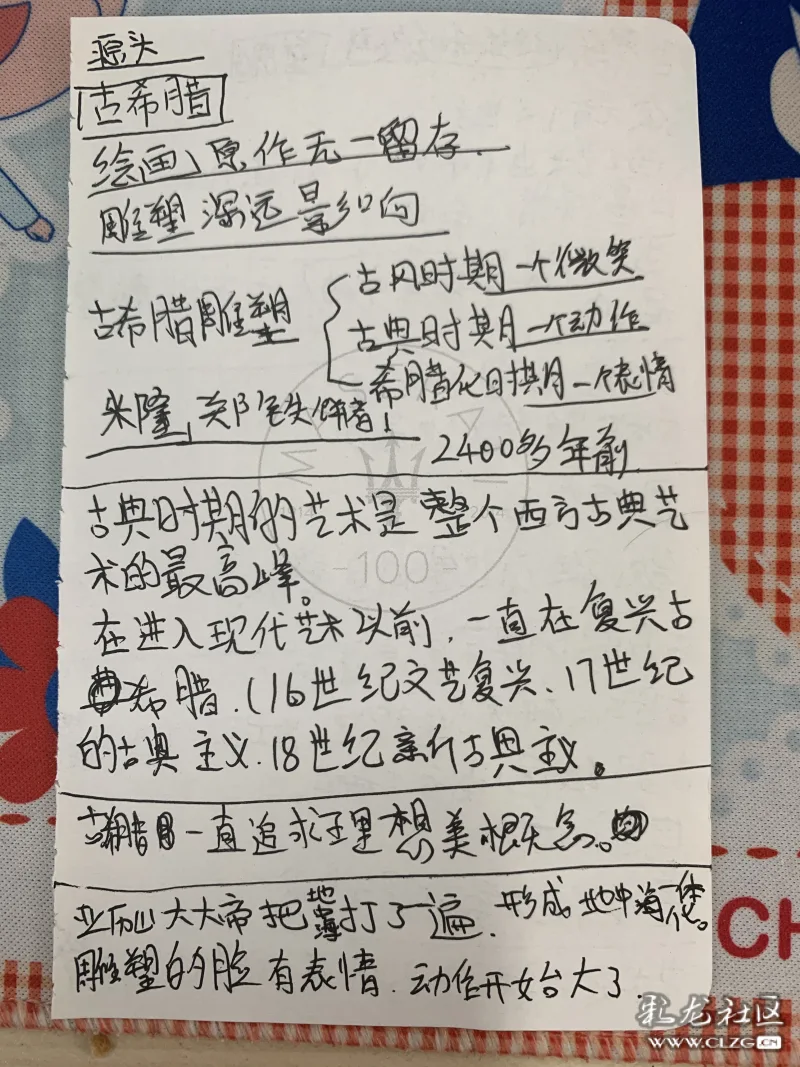 源头
古希腊
绘画,原作无一留存.
雕塑 深远影响
古希腊雕塑
古风时期 一个微笑
古典时期 一个动作
希腊化时期 一个表情
米隆,
2400多年前
古典时期的艺术是整个西方古典艺
术的最高峰。
在进入现代艺术以前,一直在复兴古
希腊.(16世纪文艺复兴、17世纪
的古典主义.18世纪新古典主义。
古希腊 一直追求理想美概念。
亚历山大大帝把 打了一遍.形成地中海一体化。
雕塑的脸有表情.动作开始大了.
100
彩龙社区
WWW.CLZG.CN
CH